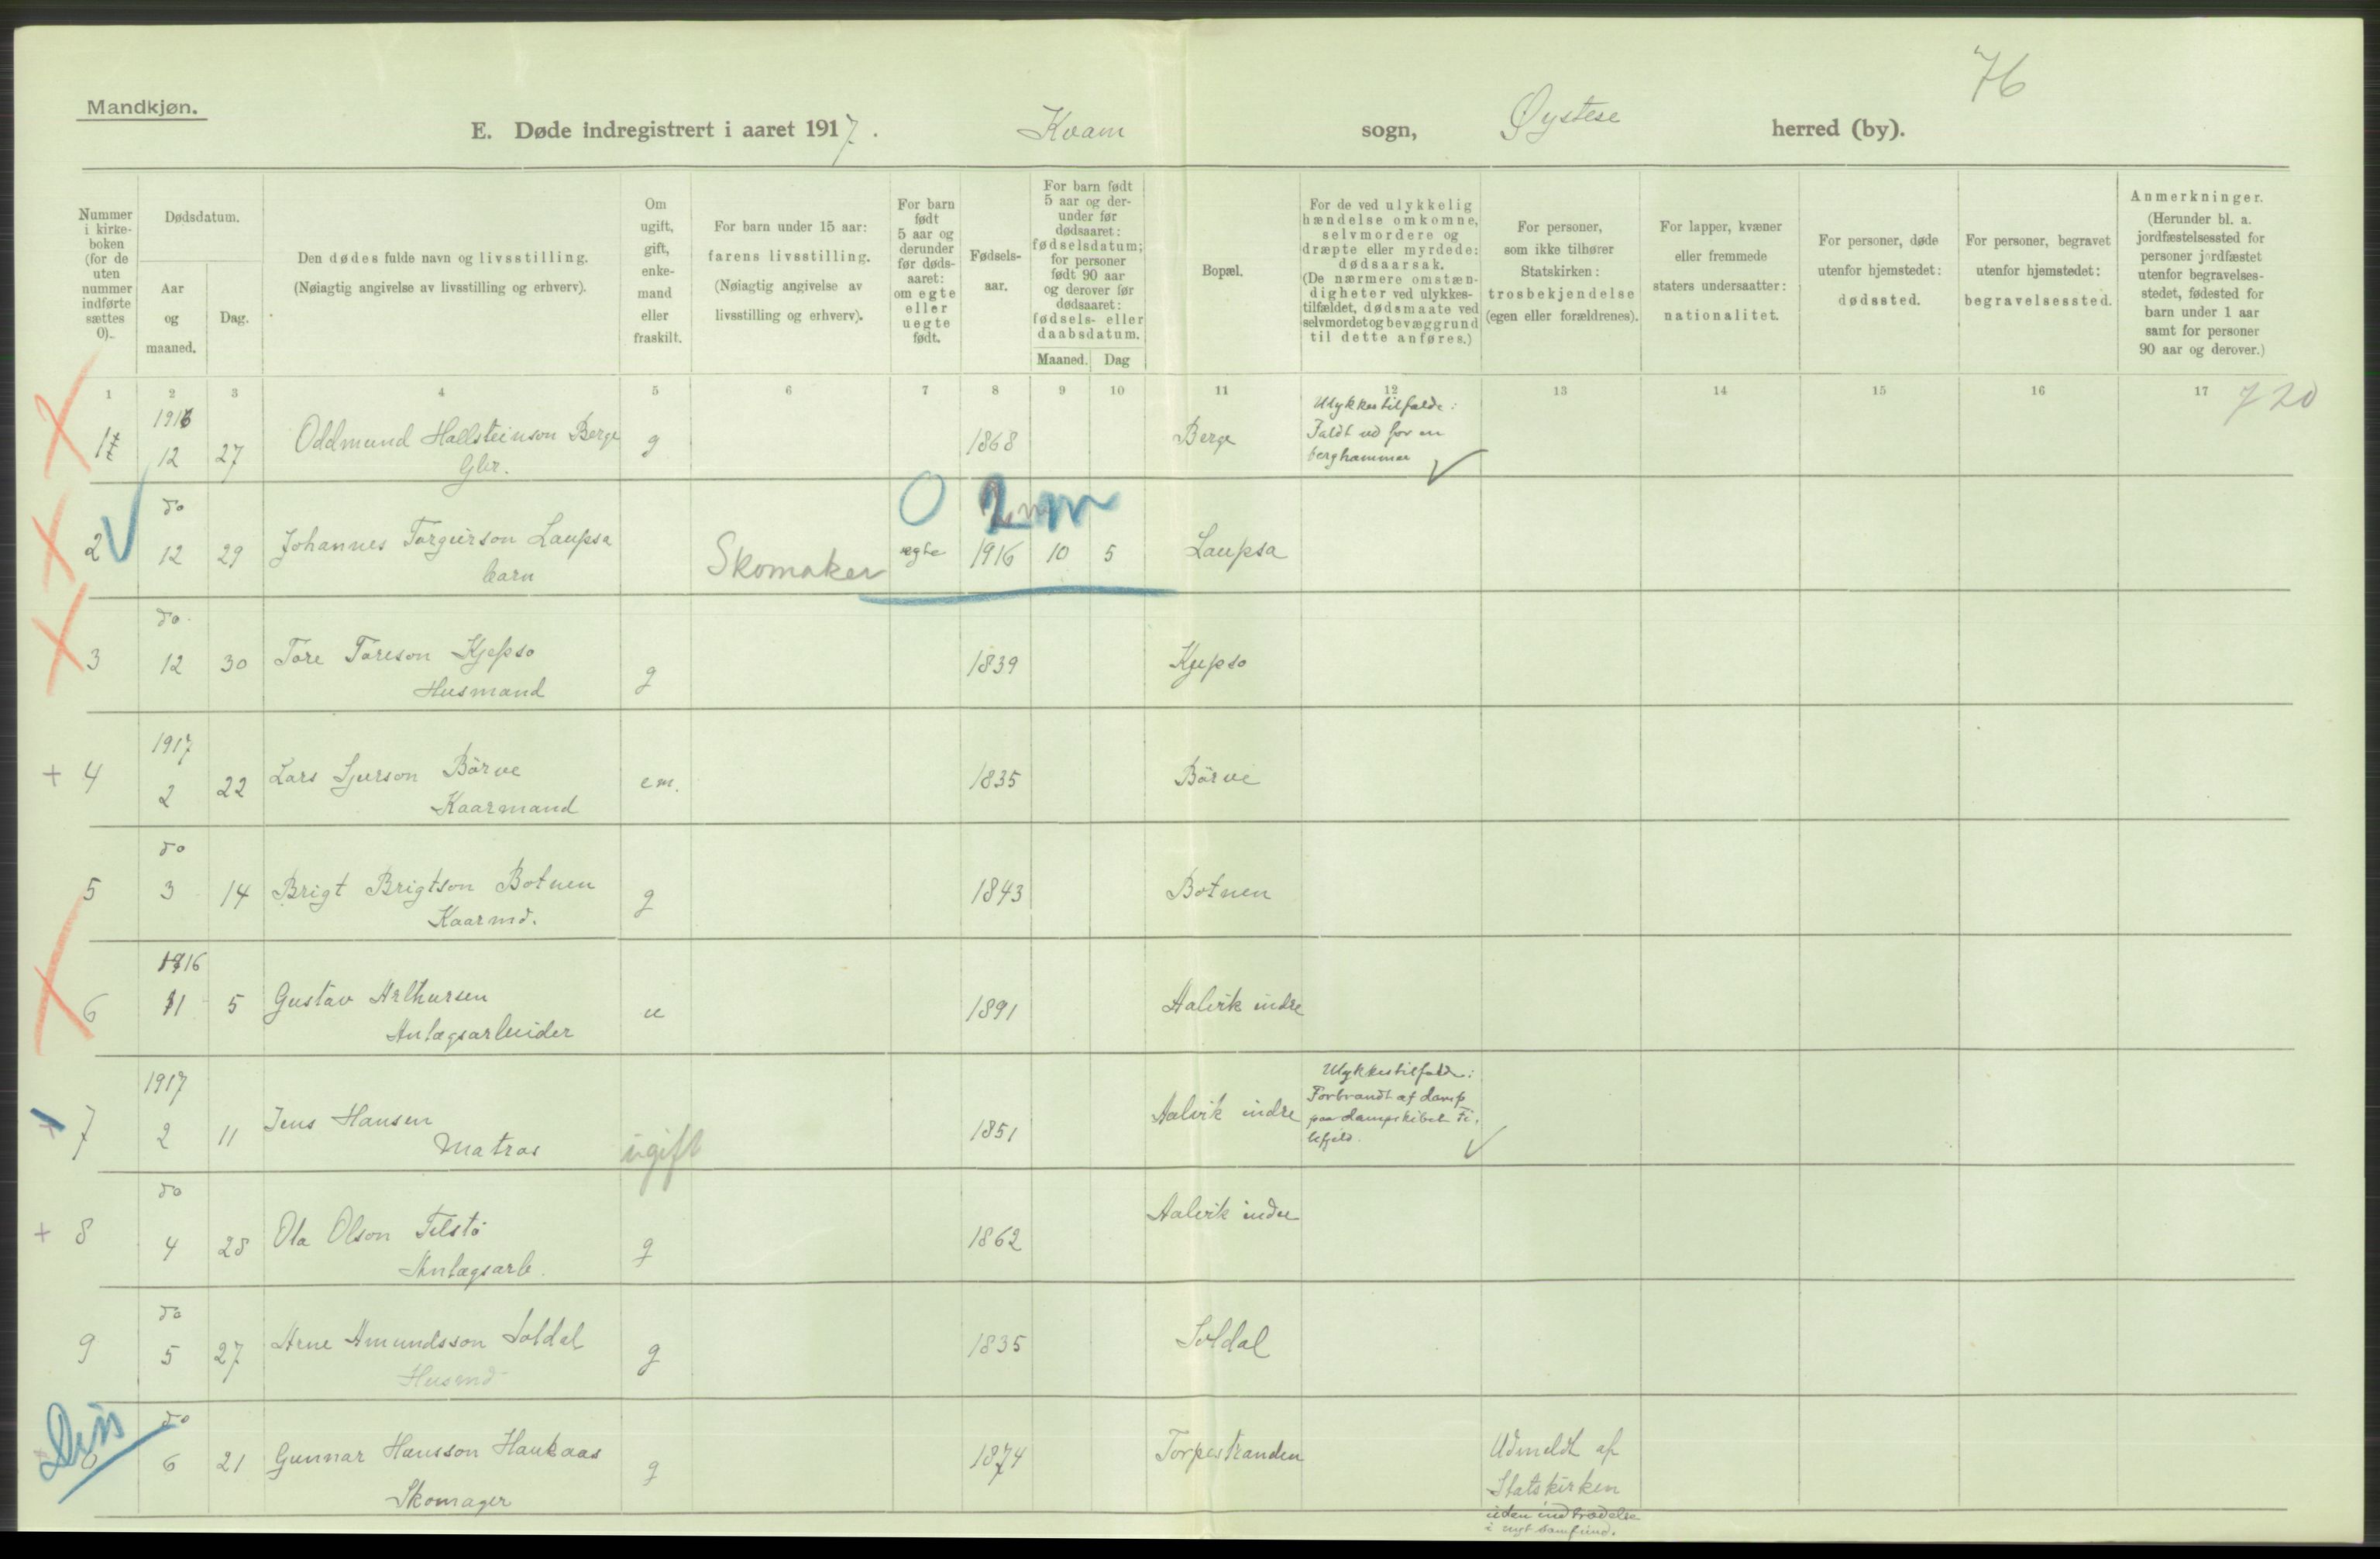 76
Mandkjøn.
E. Døde indregistrert i aaret 1917. Kvam sogn, Øystese herred (by).
Nummer i kirke-boken (for de uten nummer indførte sættes 0).
Dødsdatum.
Aar og maaned.
Dag.
Den dødes fulde navn og livsstilling.
(Nøiagtig angivelse av livsstilling og erhverv).
Om ugift, gift, enke-mand eller fraskilt.
For barn under 15 aar: farens livsstilling.
(Nøiagtig angivelse av livsstilling og erhverv).
For barn født 5 aar og derunder før døds-aaret: om egte eller uegte født.
Fødsels-aar.
For barn født 5 aar og der-under før dødsaaret: fødselsdatum; for personer født 90 aar og derover før dødsaaret: fødsels- eller daabsdatum.
Maaned. Dag
Bopæl.
For de ved ulykkelig hændelse omkomne, selvmordere og dræpte eller myrdede: dødsaarsak.
(De nærmere omstæn-digheter ved ulykkes-tilfældet, dødsmaate ved selvmordet og bevæggrund til dette anføres.)
For personer, som ikke tilhører Statskirken: trosbekjendelse (egen eller forældrenes).
For lapper, kvæner eller fremmede staters undersaatter: nationalitet.
For personer, døde utenfor hjemstedet: dødssted.
For personer, begravet utenfor hjemstedet: begravelsessted.
Anmerkninger.
(Herunder bl. a. jordfæstelsessted for personer jordfæstet utenfor begravelses-stedet, fødested for barn under 1 aar samt for personer 90 aar og derover.)
1 2 3 4 5 6 7 8 9 10 11 12 13 14 15 16 17 720
1 1916 12 27 Oddmund Hallsteinson Berge g 1868 Berge Ulykkestilfælde:
Gbr. Faldt ud for en
berghammer
0 2 m
2 do 12 29 Johannes Torgeirson Laupsa Skomaker egte 1916 10 5 Laupsa
barn
3 do 12 30 Tore Toreson Kjepso g 1839 Kjepso
Husmand
4 1917 2 22 Lars Sjurson Börve em. 1835 Börve
Kaarmand
5 do 3 14 Brigt Brigtson Botnen g 1843 Botnen
Kaarmd.
6 1916 11 5 Gustav Arthursen u 1891 Aalvik indre
Anlægsarbeider
7 1917 2 11 Jens Hansen ugift 1851 Aalvik indre Ulykkestilfælde:
Matros Forbrandt af damp
paa dampskibet Fi-
lefjeld.
8 do 4 28 Ola Olson Telstö g 1862 Aalvik indre
Anlægsarb.
9 do 5 27 Arne Amundsson Soldal g 1835 Soldal
Husmd
Dis
do 6 21 Gunnar Hansson Haukaas g 1874 Torpestranden Udmeldt af
Skomager Statskirken
uden indtrædelse
i nyt samfund.